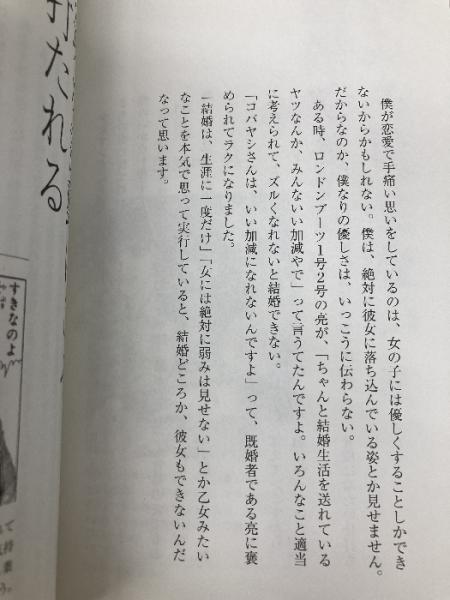 僕が恋愛で手痛い思いをしているのは、女の子には優しくすることしかでき
ないからかもしれない。僕は、絶対に彼女に落ち込んでいる姿とか見せません。
だからなのか、僕なりの優しさは、いっこうに伝わらない。
ある時、ロンドンブーツ1号2号の亮が、「ちゃんと結婚生活を送れている
ヤツなんか、みんないい加減やで」って言うてたんですよ。いろんなこと適当
に考えられて、ズルくなれないと結婚できない。
「コバヤシさんは、いい加減になれないんですよ」って、既婚者である亮に褒
められてラクになりました。
「結婚は、生涯に一度だけ」「女には絶対に弱みは見せない」とか乙女みたい
なことを本気で思って実行していると、結婚どころか、彼女もできないんだ
なって思います。
たれる
すきなのよ